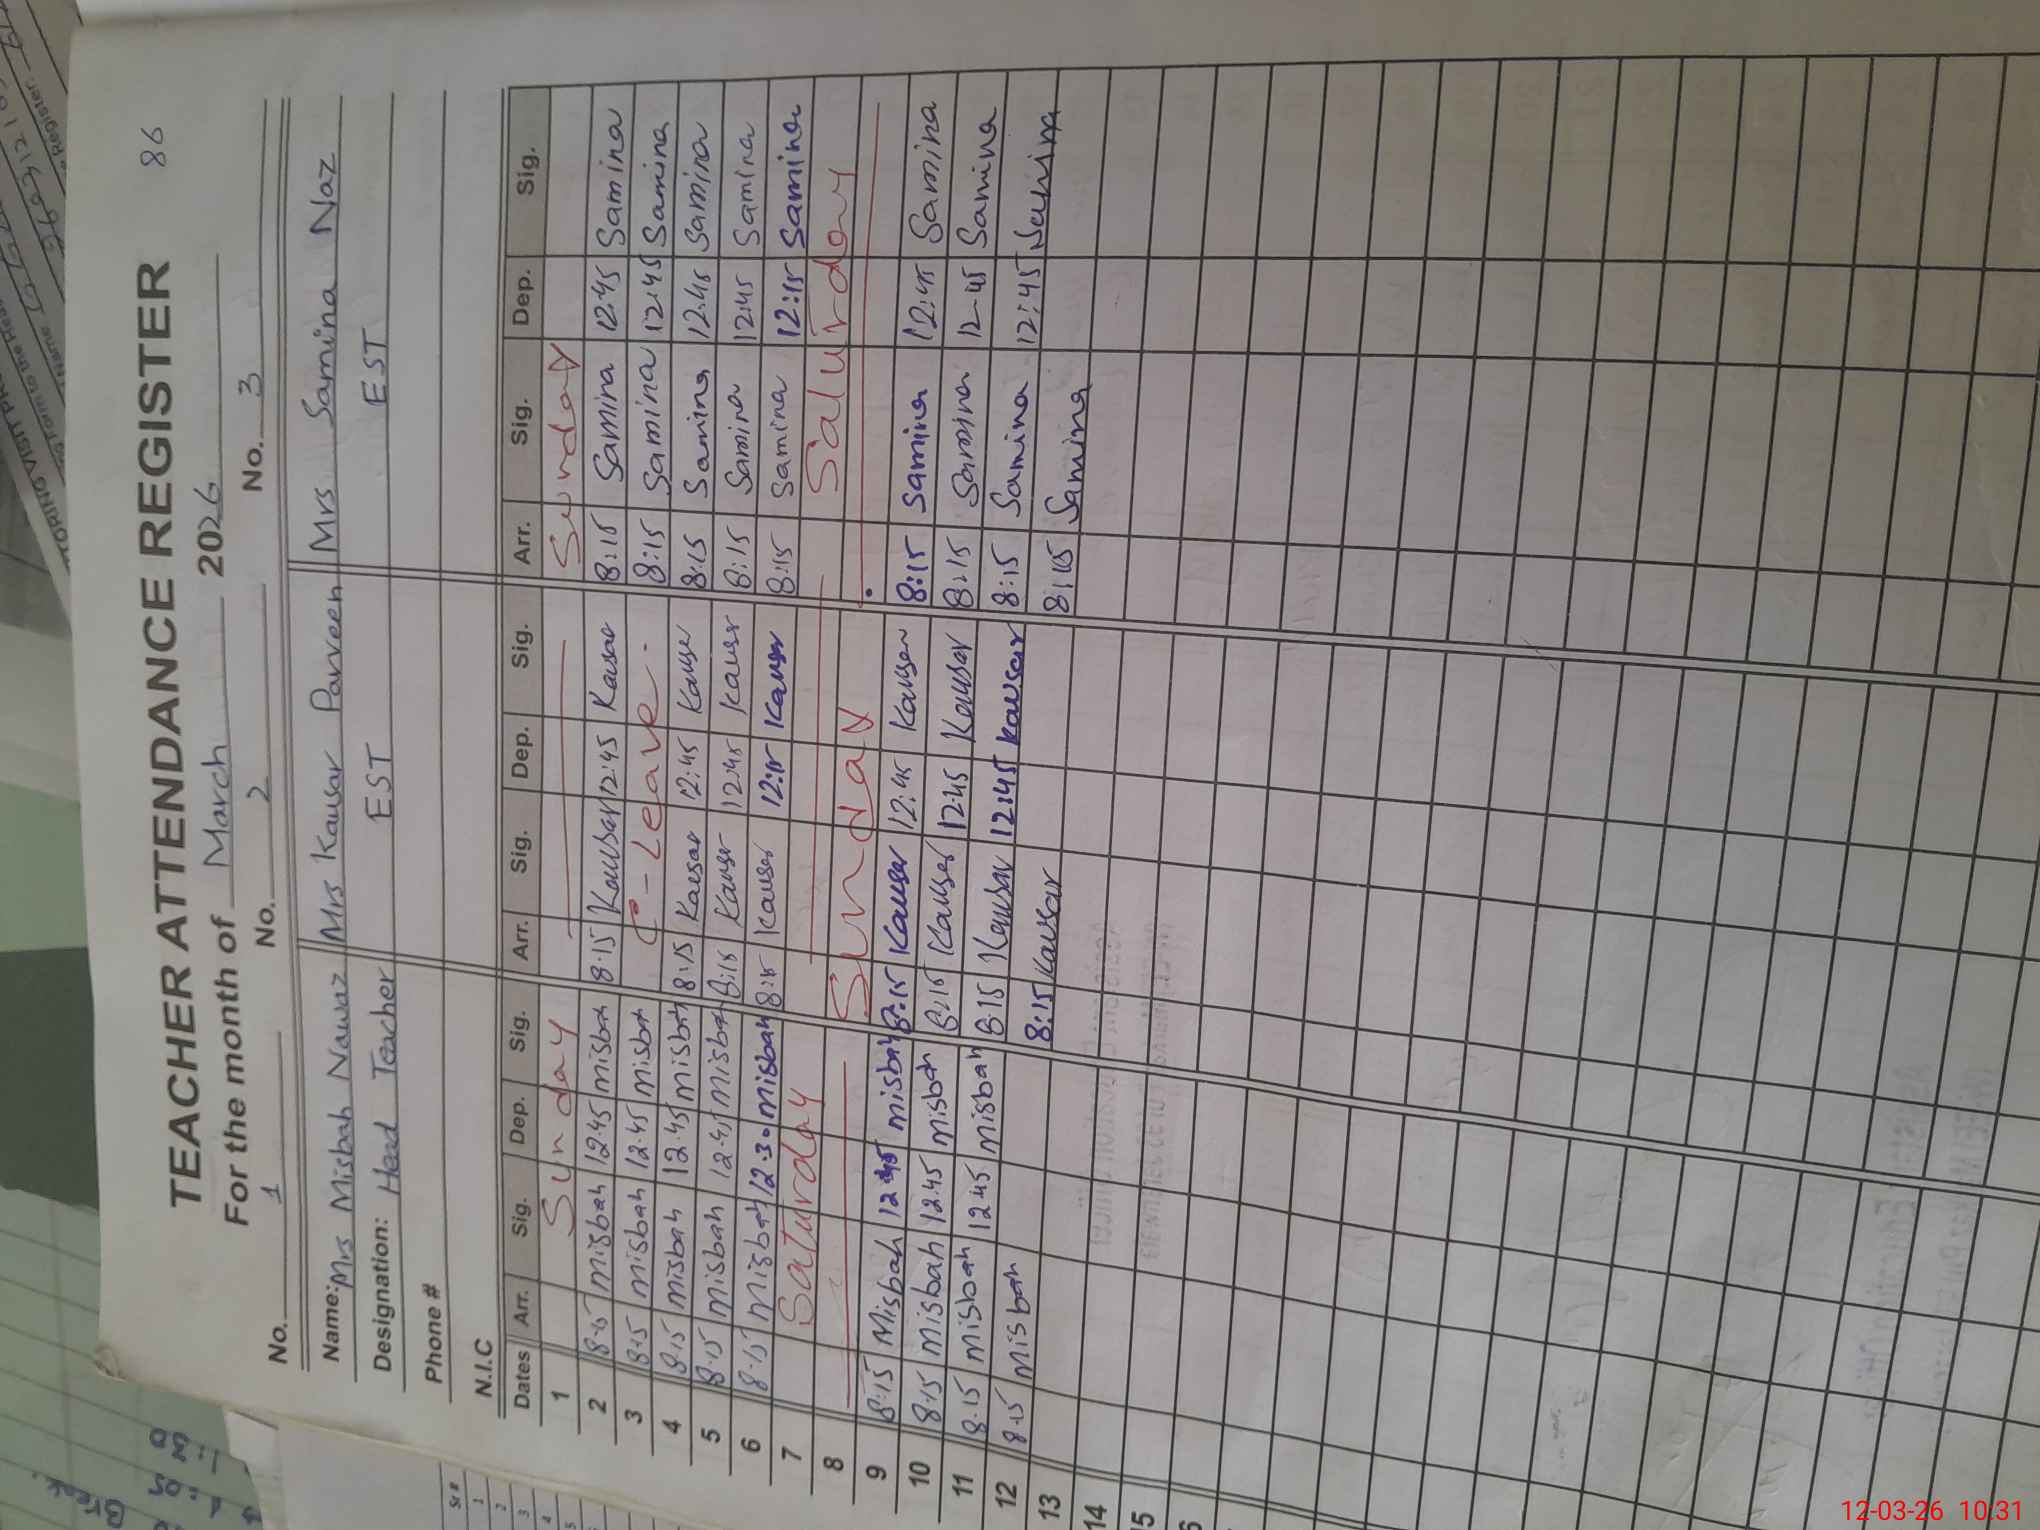 TEACHER ATTENDANCE REGISTER 86
For the month of March 2026
No. 1 No. 2 No. 3
Name: Mrs Misbah Nawaz Mrs Kausar Parveen Mrs Samina Naz
Designation: Head Teacher EST EST
Phone #
N.I.C
Dates Arr. Sig. Dep. Sig. Arr. Sig. Dep. Sig. Arr. Sig. Dep. Sig.
1 Sunday Sunday
2 8:15 misbah 12:45 misbah 8:15 Kausar 12:45 Kausar 8:15 Samina 12:45 Samina
3 8:15 misbah 12:45 misbah C-Leave 8:15 Samina 12:45 Samina
4 8:15 misbah 12:45 misbah 8:15 Kausar 12:45 Kausar 8:15 Samina 12:45 Samina
5 8:15 misbah 12:45 misbah 8:15 Kausar 12:45 Kausar 8:15 Samina 12:45 Samina
6 8:15 misbah 12:30 misbah 8:15 Kausar 12:15 Kausar 8:15 Samina 12:15 Samina
7 Saturday Saturday
8 Sunday
9 8:15 Misbah 12:45 misbah 8:15 Kausar 12:45 Kausar 8:15 Samina 12:45 Samina
10 8:15 misbah 12:45 misbah 8:15 Kausar 12:45 Kausar 8:15 Samina 12-45 Samina
11 8:15 misbah 12:45 misbah 8:15 Kausar 12:45 Kausar 8:15 Samina 12:45 Samina
12 8:15 misbah 8:15 Kausar 8:15 Samina
13
14
15
12-03-26 10:31